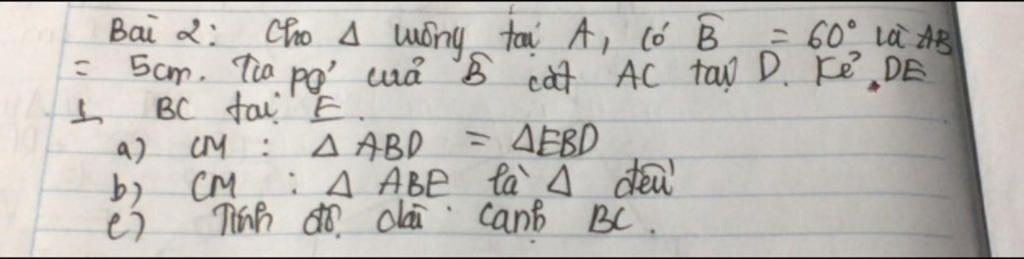 Bài 2: Cho Δ vuông tại A, có B̂ = 60° và AB
= 5cm. Tia pg' của B̂ cắt AC tại D. Kẻ DE
⊥ BC tại E.
a) CM : Δ ABD = ΔEBD
b) CM : Δ ABE là Δ đều
c) Tính độ dài cạnh BC.